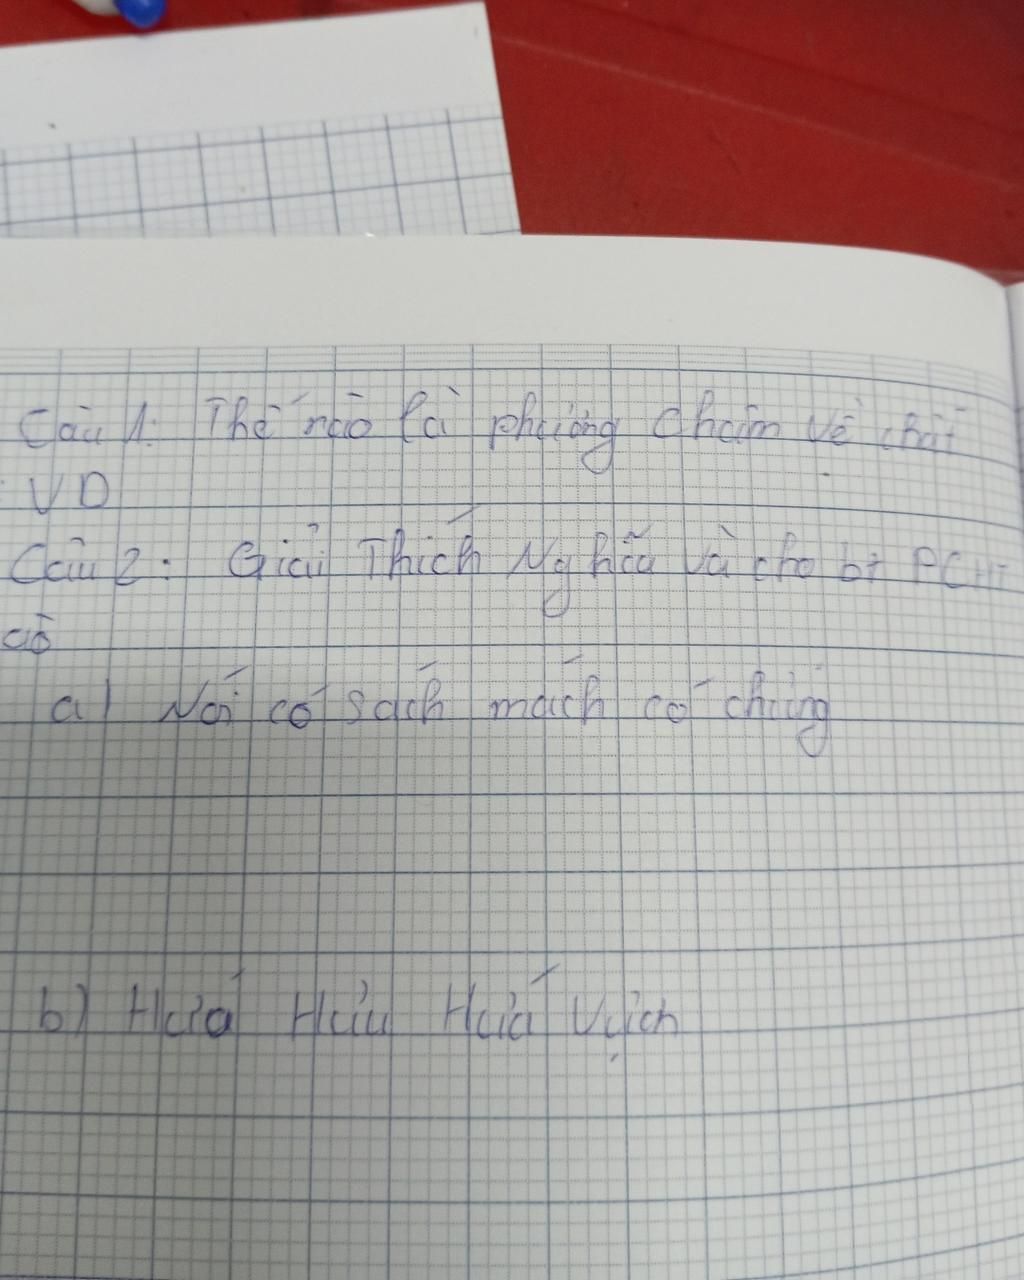 Câu 1: Thế nào là phương châm về chất
: VD
Câu 2: Giải Thích Nghĩa và cho bt PCHT
aõ
a) Nói có sách mách có chứng
b) Hứa Hươu Hứa Vượn